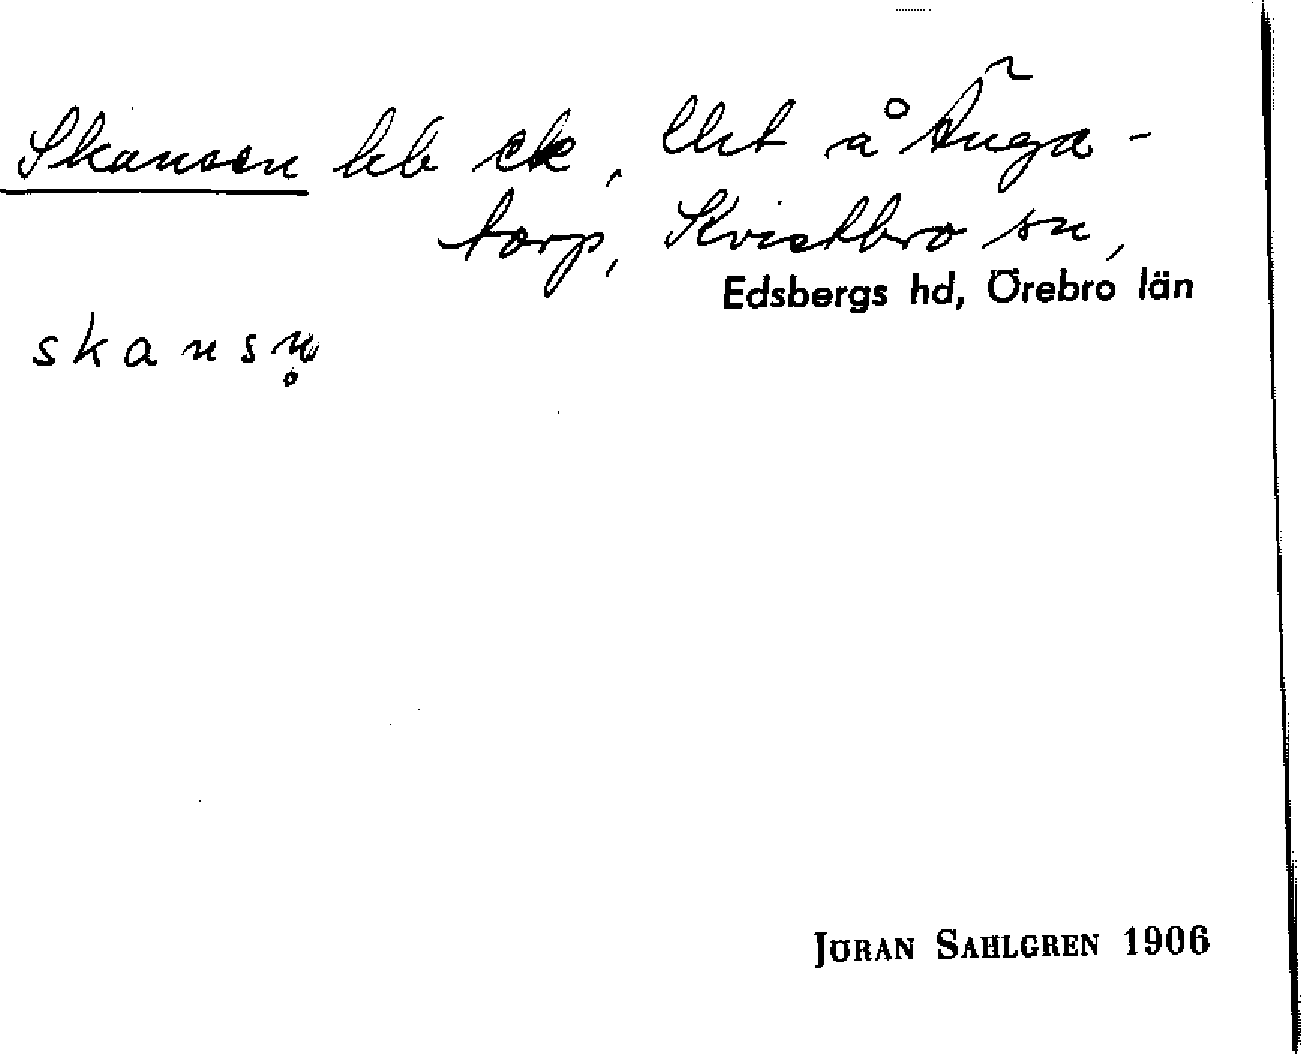 Skansen , lht å Änga-
torp, Kvistbro sn,
Edsbergs hd, Örebro län
skansn̥
JÖRAN SAHLGREN 1906